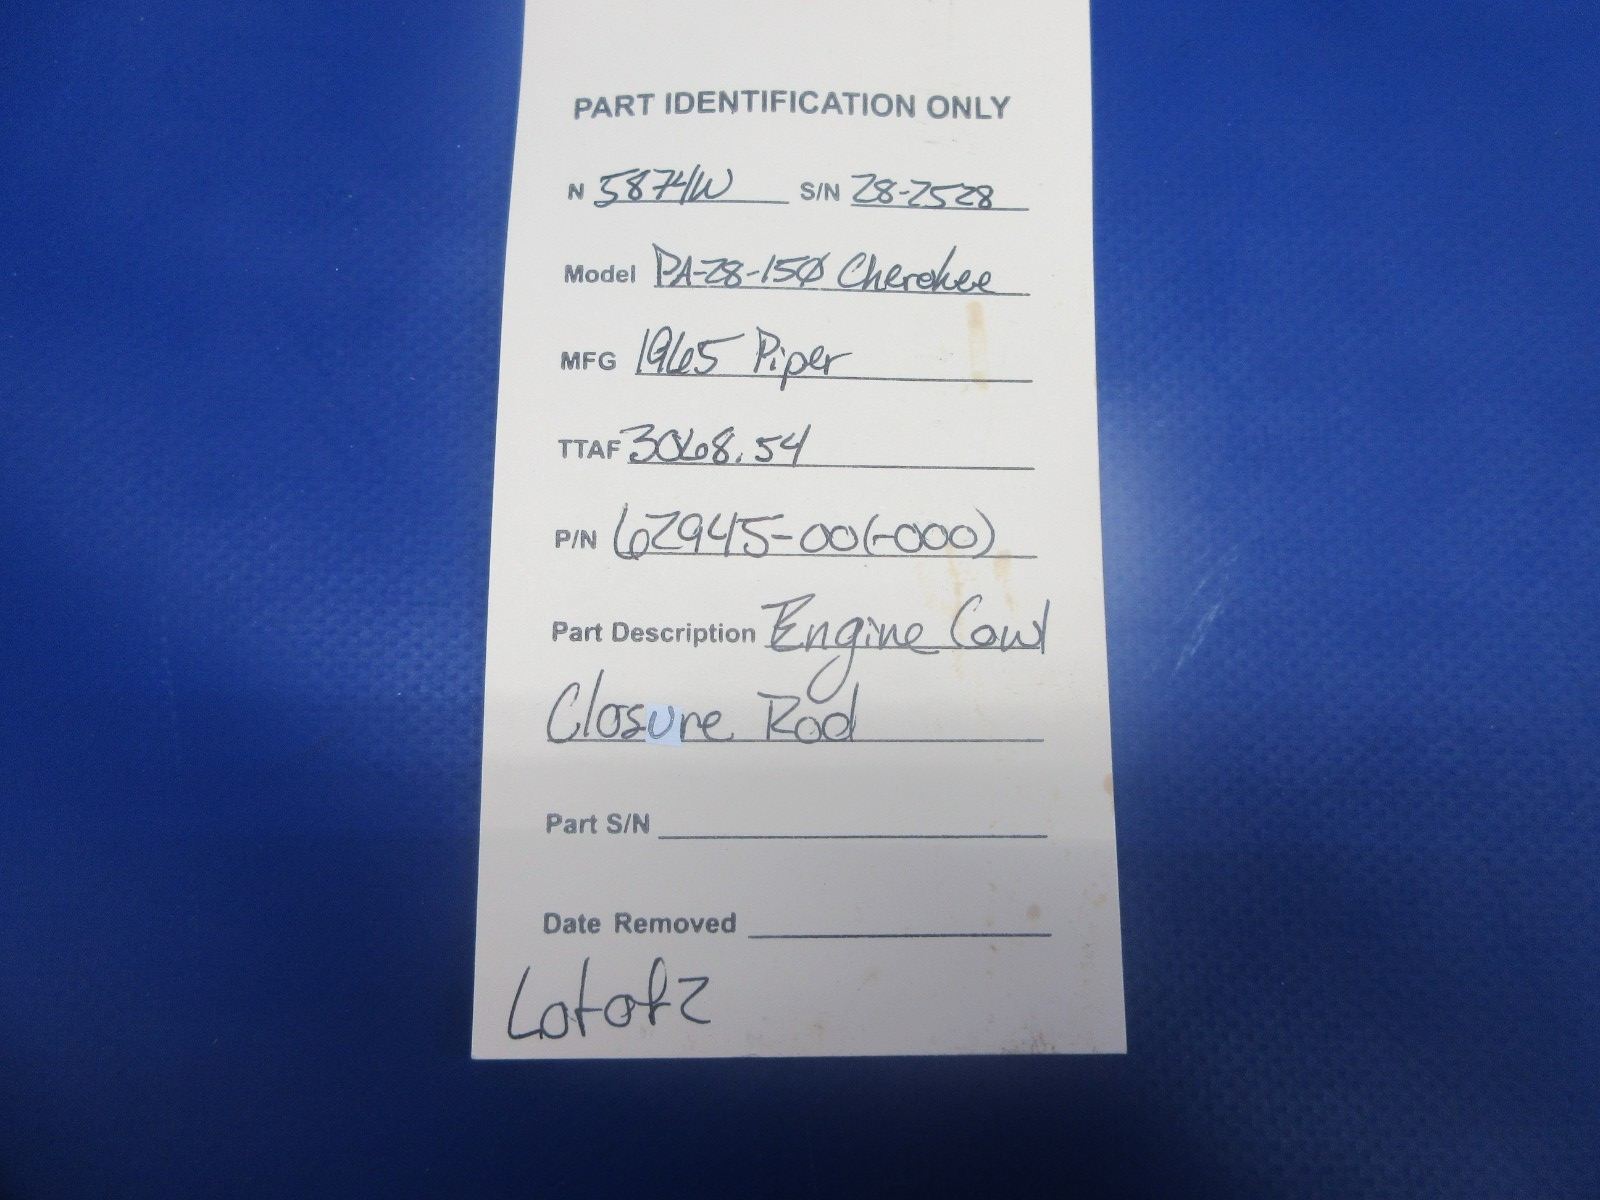 PART IDENTIFICATION ONLY
N 5874W S/N 28-2528
Model PA-28-150 Cherokee
MFG 1965 Piper
TTAF 3068.54
P/N 62945-00(-000)
Part Description Engine Cowl
Closure Rod
Part S/N
Date Removed
Lot of 2